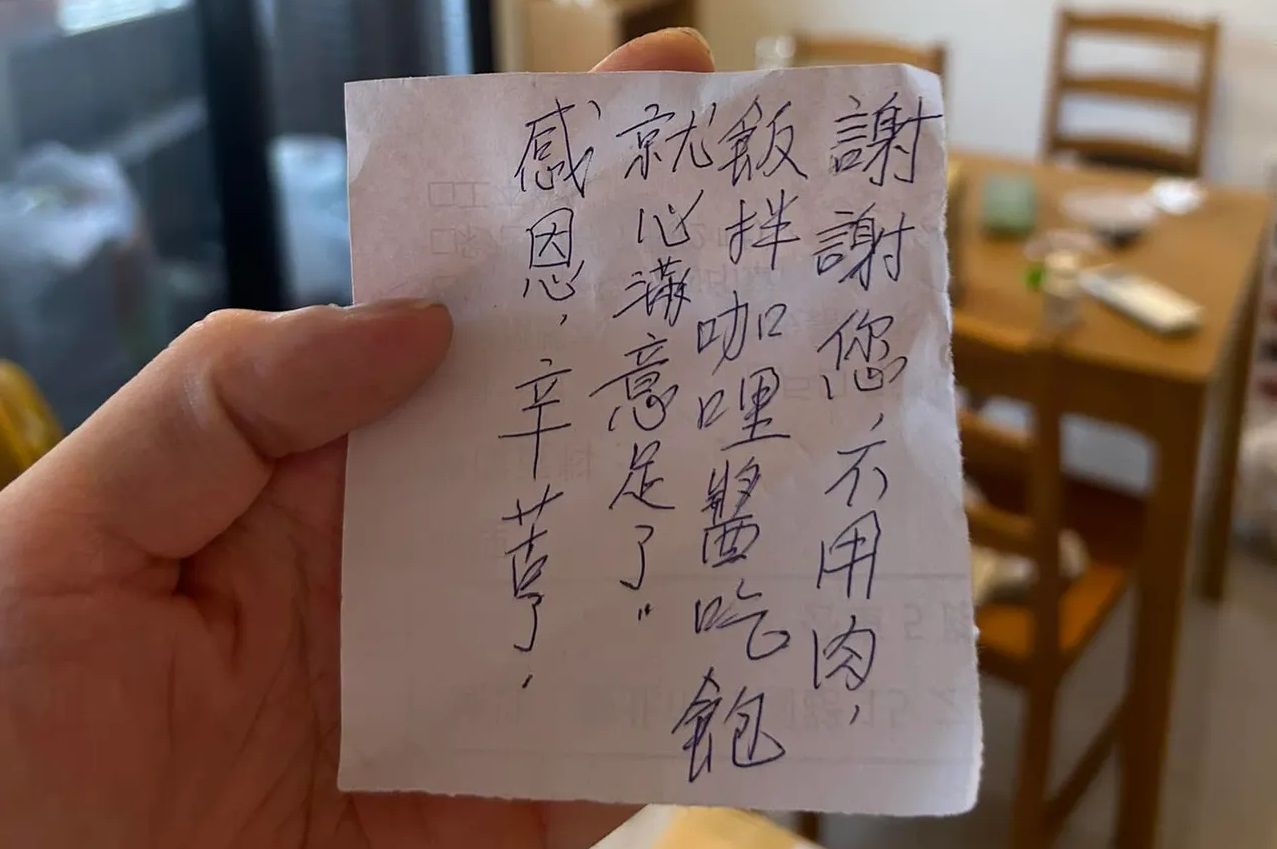 謝謝您，不用肉，
飯拌咖哩醬吃飽
就心滿意足了"
感恩，辛苦了，